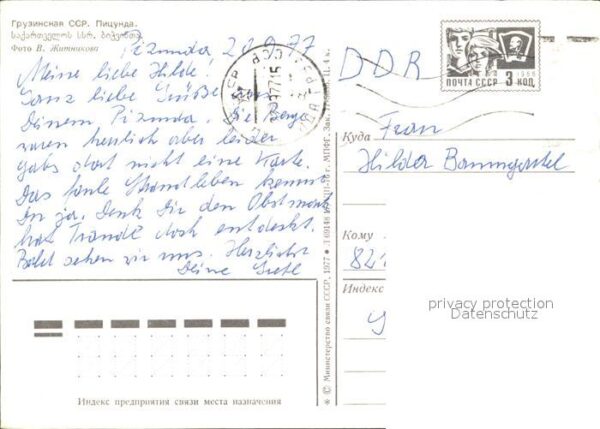 Грузинская ССР. Пицунда.
საქართველოს სსრ. ბიჭვინთა
Фото В. Житникова
Pizunda 20.9.77
Meine liebe Hilde!
Ganz liebe Grüße von
Deinem Pizunda. Die Berge
waren herrlich aber leider
gabs dort nicht eine Karte.
Das faule Strandleben kennst
Du ja. Denk Dir den Obstmarkt
hat Traudl doch entdeckt.
Bald sehen wir uns. Herzlichst
Deine
Индекс предприятия связи места назначения
© Министерство связи СССР, 1977
МПФГ. Зак.
ПОЧТА СССР 3 КОП.
1966
DDR
Куда
Frau
Hilda
Кому
Индекс
privacy protection
Datenschutz